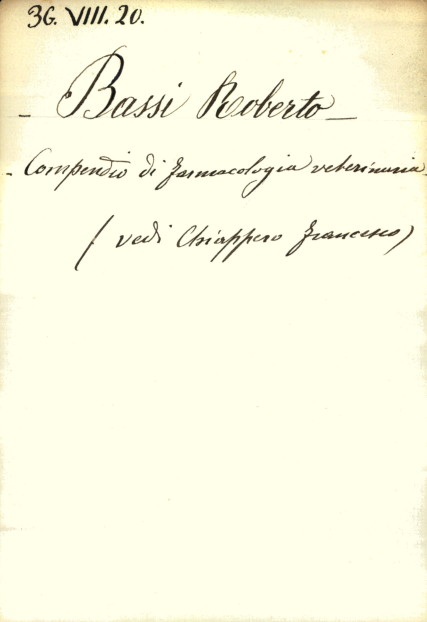 36. VIII. 20.
- Bassi Roberto -
- Compendio di farmacologia veterinaria -
( vedi Chiappero Francesco )